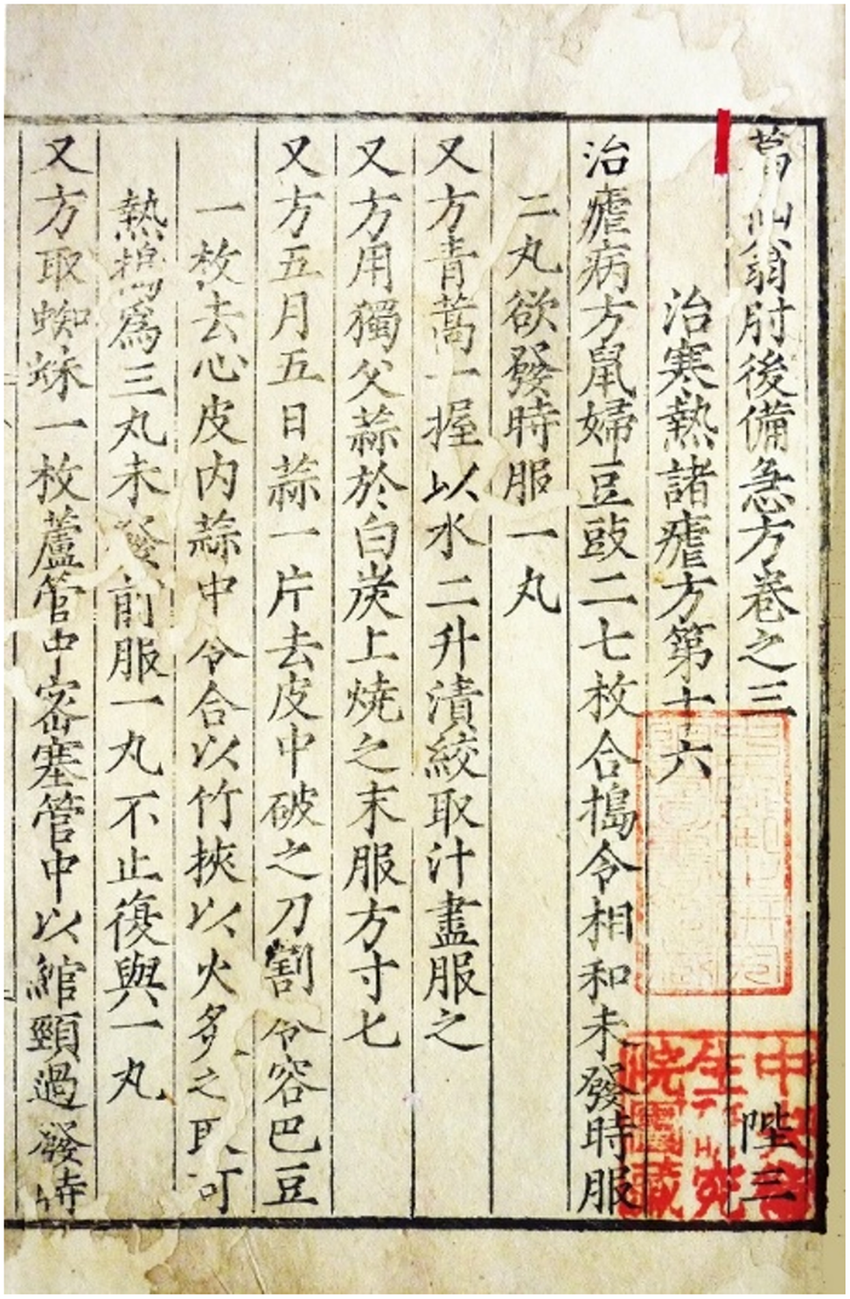 葛仙翁肘後備急方卷之三 陛三
治寒熱諸瘧方第十六
治瘧病方鼠婦豆豉二七枚合搗令相和未發時服
二丸欲發時服一丸
又方青蒿一握以水二升漬絞取汁盡服之
又方用獨父蒜於白炭上燒之末服方寸匕
又方五月五日蒜一片去皮中破之刀割令容巴豆
一枚去心皮內蒜中令合以竹挾以火炙之取可
熱搗為三丸未發前服一丸不止復與一丸
又方取蜘蛛一枚蘆管中密塞管中以綰頸過發時